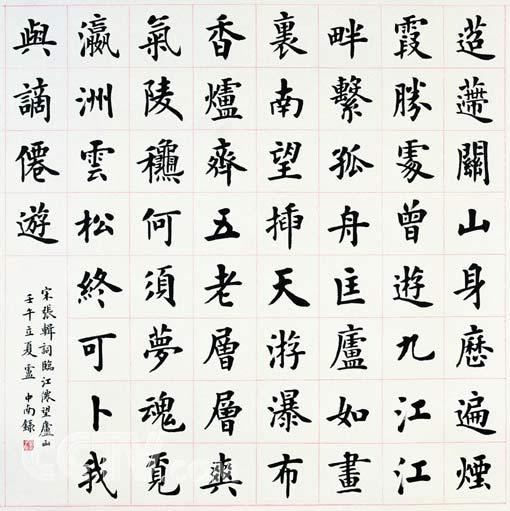 迢遰關山身歷遍煙
霞勝處曾遊九江江
畔繫孤舟匡廬如畫
裏南望插天浮瀑布
香爐齊五老層層爽
氣陵龝何須夢魂覓
瀛洲雲松終可卜我
與謫僊遊
宋張輯詞臨江僊望廬山
壬午立夏盧中南錄
CCTV.com